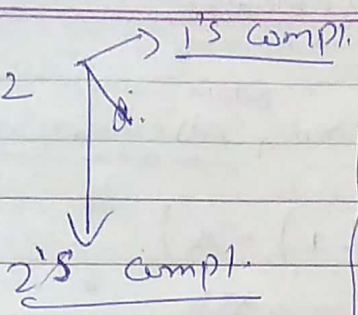 1's compl.
2
2's compl.